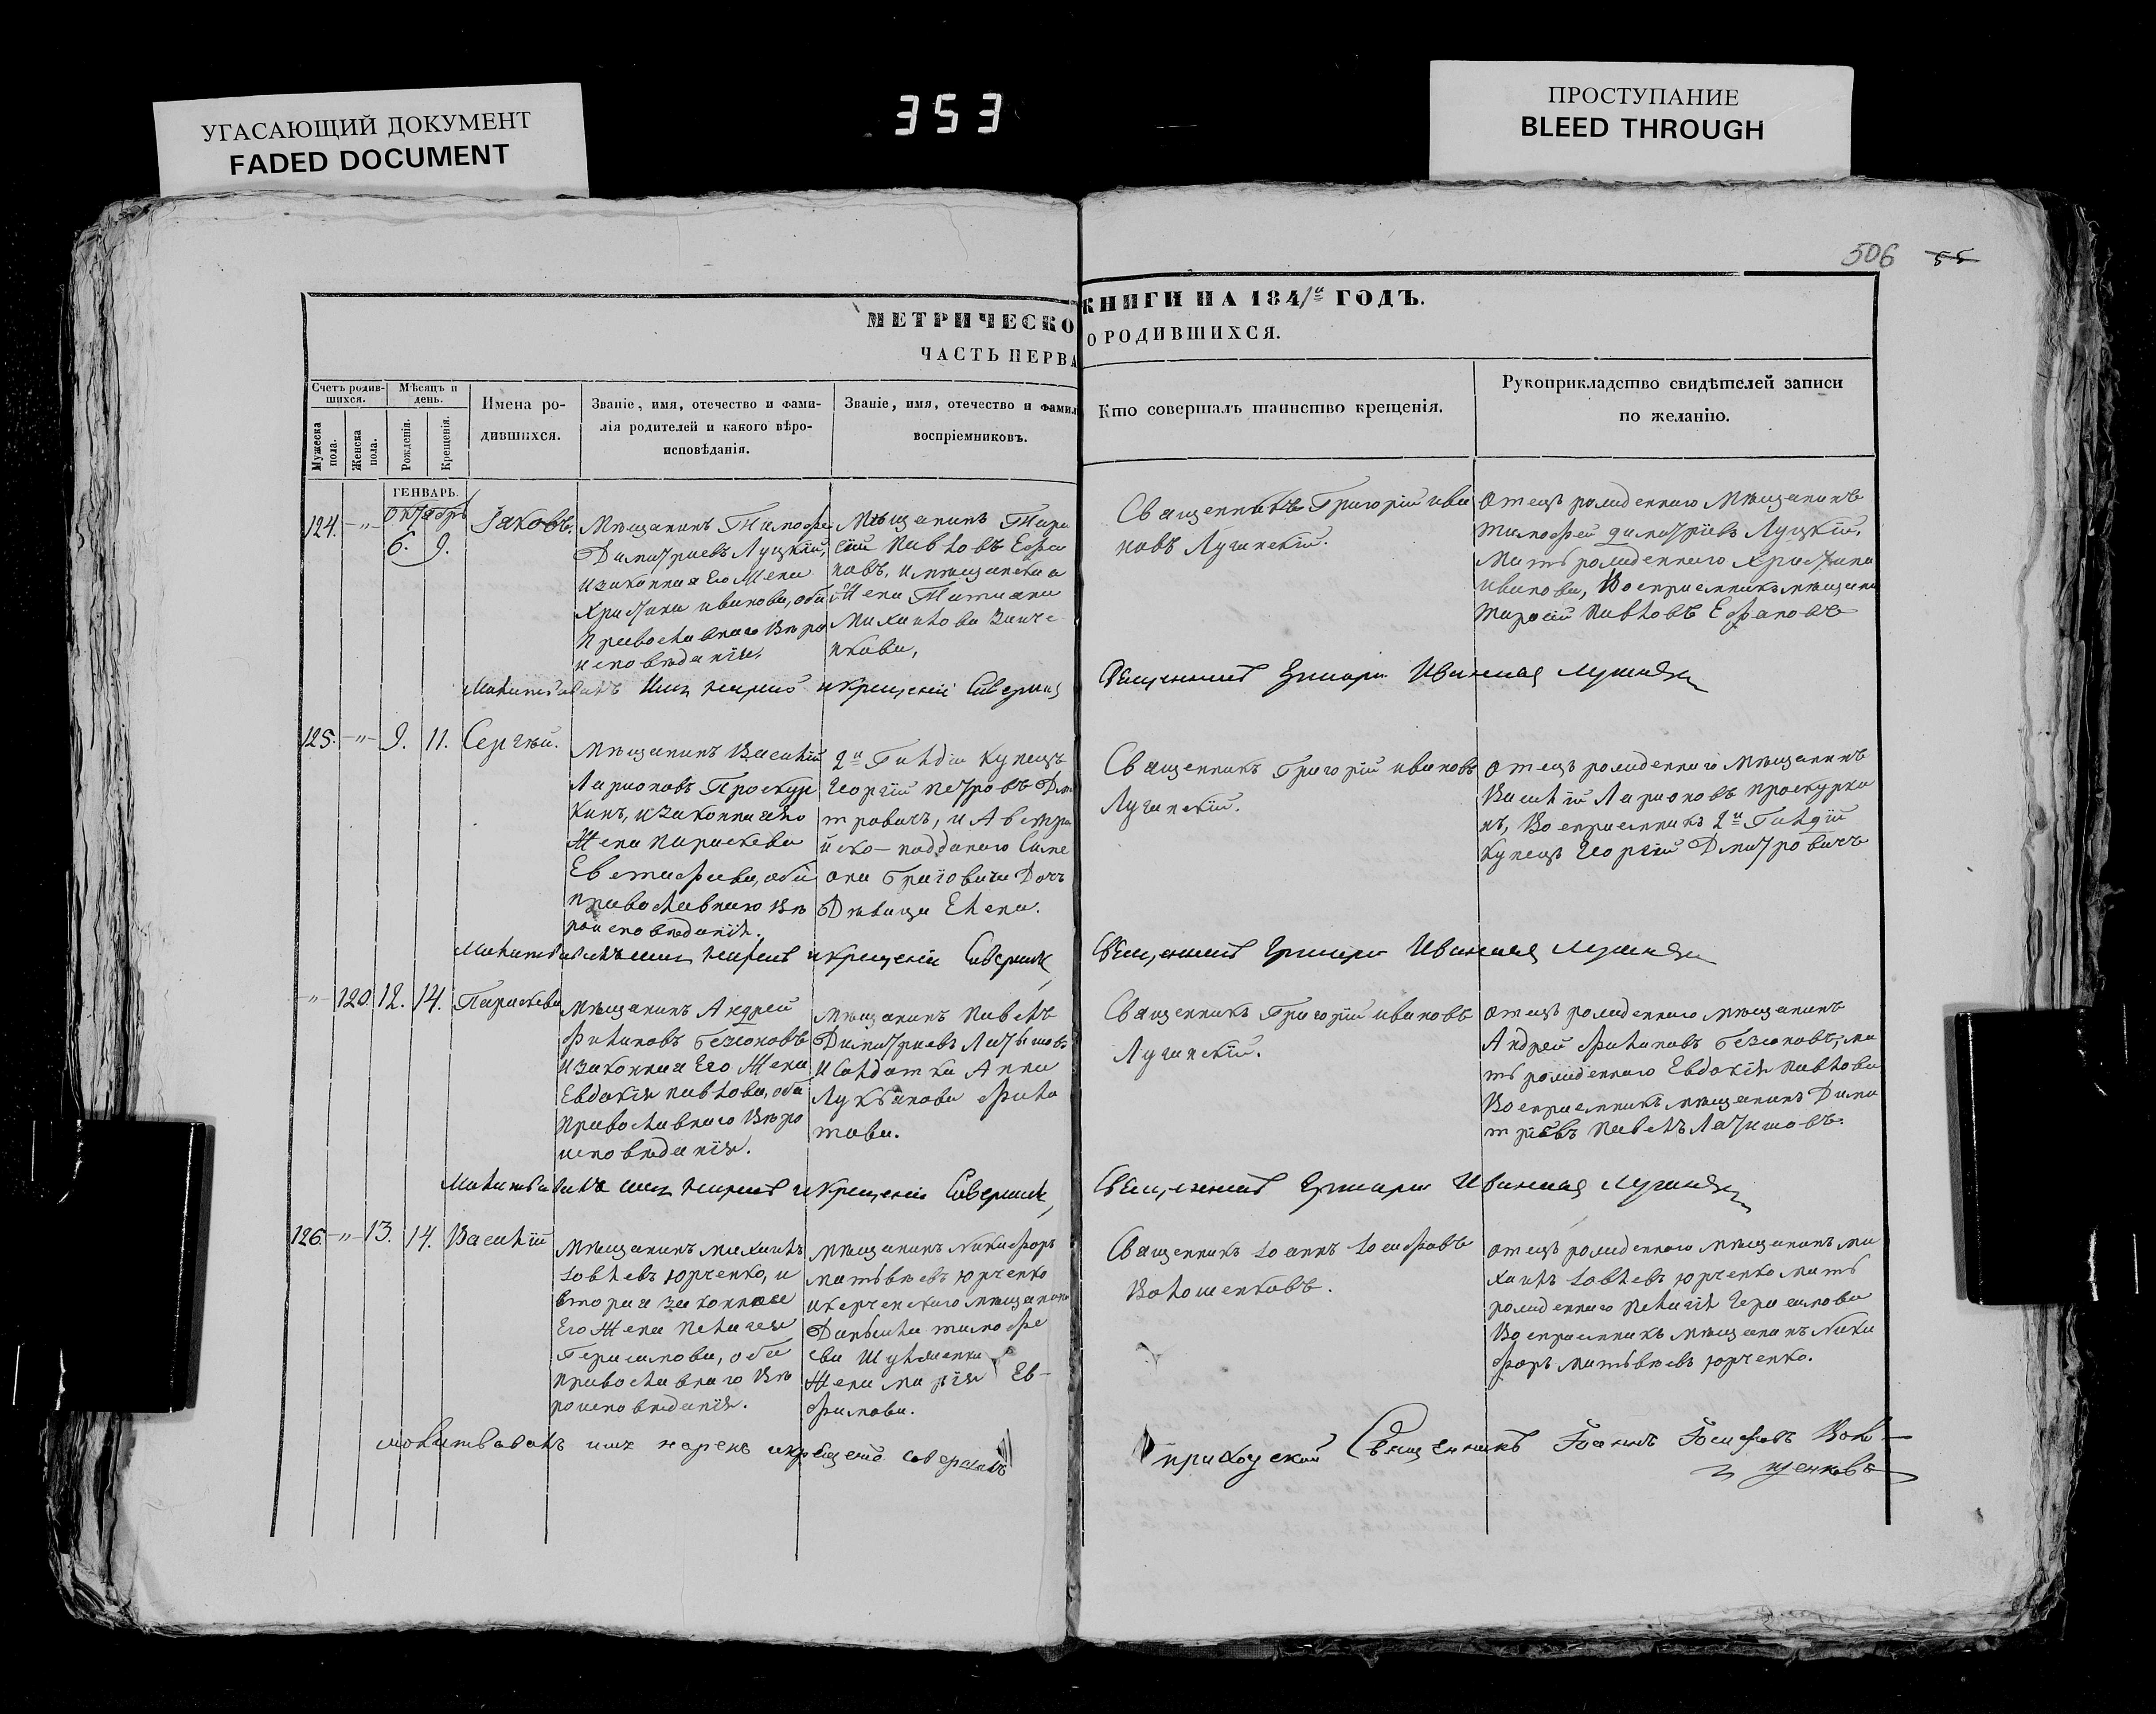 УГАСАЮЩИЙ ДОКУМЕНТ
FADED DOCUMENT
353
ПРОСТУПАНИЕ
BLEED THROUGH
506
55
МЕТРИЧЕСКО
ЧАСТЬ ПЕРВА
КНИГИ НА 1841й ГОДЪ.
О РОДИВШИХСЯ.
Счетъ родив-
шихся.
Мужеска
пола.
Женска
пола.
Мѣсяцъ и
день.
Рожденія.
Крещенія.
Имена ро-
дившихся.
Званіе, имя, отечество и фами-
лія родителей и какого вѣро-
исповѣданія.
Званіе, имя, отечество и фамил
воспріемниковъ.
Кто совершалъ таинство крещенія.
Рукоприкладство свидѣтелей записи
по желанію.
ГЕНВАРЬ.
Октябрь
124. -"- 6. 9. Іаковъ.
Мѣщанинъ Тимофе
Димитріевъ Луцкій,
и законная Его Жена
Христина иванова, оба
Православнаго Вѣро
исповѣданія.
Мѣщанинъ Тара
сій Павловъ Ефа
новъ, и мѣщанска
Жена Татиана
Михаилова
Священникъ Григорій ива
новъ Лугинскій.
Отецъ рожденнаго Мѣщанинъ
Тимофей димитріевъ Луцкій,
Мать рожденнаго Христина
иванова, Восприемникъ мѣщани
Тарасій Павловъ Ефановъ
Молитвовалъ имя нарекъ и Крещеніе Соверши
Священникъ Григори Ивановъ
125. -"- 9. 11. Сергѣй.
Мѣщанинъ Василій
Ларионовъ Проскур
кинъ, и законная его
Жена Параскева
Евстафиева, оба
православнаго Вѣ
роисповѣданія.
2й Гилдіи Купецъ
Георгій Петровъ Дми
тровичъ, и Австри
йско-подданаго Симе
она Григовича Дочь
Дѣвица Елена.
Священникъ Григорій ивановъ
Лугинскій.
Отецъ рожденнаго Мѣщанинъ
Василій Ларионовъ проскурки
нъ, Восприемникъ 2й Гилдіи
Купецъ Георгій Дмитровичъ
Молитвовалъ имя нарекъ и крещеніе Соверши
Священникъ Григори Ивановъ
-"- 120. 12. 14. Параскева
Мѣщанинъ Андрей
Филиповъ Безюновъ
и законная Его Жена
Евдокія павлова, оба
Православнаго Вѣро
исповѣданія.
Мѣщанинъ Павелъ
Димитриевъ Латышовъ
и Солдатка Анна
Лукьянова Фила
това.
Священникъ Григорій ивановъ
Лугинскій.
Отецъ рожденнаго мѣщанинъ
Андрей Филиповъ Безюновъ, ма
ть рожденнаго Евдокія Павлова
Восприемникъ мѣщанинъ Дими
тріевъ Павелъ Латишовъ.
Молитвовалъ имя нарекъ и Крещеніе Соверши
Священникъ Григори Ивановъ
126. -"- 13. 14. Василій
Мѣщанинъ михаилъ
Iовлевъ Юрченко, и
вторая законная
Его Жена Пелагея
Герасимова, оба
православнаго Вѣ
роисповѣданія.
мѣщанинъ Никифоръ
матвѣевъ Юрченко
и керченскаго мѣщанина
Даниила тимофе
ева
Жена марія Ев-
фимова.
Священникъ Іоаннъ Іосифовъ
Волошенковъ.
отецъ рожденнаго мѣщанинъ ми
хаилъ Iовлевъ Юрченко мать
рожденнаго Пелагія Герасимова
Восприемникъ мѣщанинъ Ники
форъ матвѣевъ Юрченко.
молитвовалъ имя нарекъ и крещеніе совершилъ
приходскій Священникъ Іоаннъ Іосифовъ Воло-
шенковъ